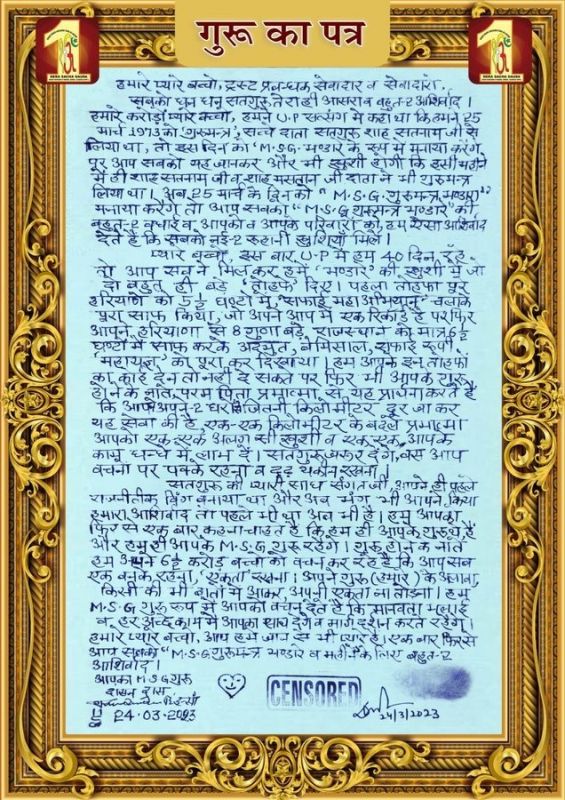 गुरू का पत्र
DERA SACHA SAUDA
DERA SACHA SAUDA
हमारे प्यारे बच्चो, ट्रस्ट प्रबन्धक सेवादार व सेवादारों,
सबको धन धन सतगुरु तेरा ही आसरा व बहुत-2 आशिर्वाद।
हमारे करोड़ों प्यारे बच्चों, हमने U.P सत्संग में कहा था कि हमने 25
मार्च 1973 को गुरुमन्त्र, सच्चे दाता सतगुरु शाह सतनाम जी से
लिया था, तो इस दिन को "M.S.G भण्डारे के रूप में मनाया करेंगे
पर आप सबको यह जानकर और भी खुशी होगी कि इसी महीने
में ही शाह सतनाम जी व शाह मस्तान जी दाता ने भी गुरुमन्त्र
लिया था। अब 25 मार्च के दिन को "M.S.G गुरुमन्त्र भण्डारा"
मनाया करेंगे तो आप सबको "M.S.G गुरुमन्त्र भण्डारे" की
बहुत-2 बधाई व आपको व आपके परिवारों को, हम ऐसा आशिर्वाद
देते हैं कि सबको नई-2 रूहानी खुशियां मिलें।
प्यारे बच्चों, इस बार U.P में हम 40 दिन रहे
तो आप सब ने मिलकर हमें 'भण्डारे' की खुशी में जो
दो बहुत ही बड़े 'तोहफे' दिए। पहला तोहफा पूरे
हरियाणा को 5½ घण्टों में, 'सफाई महा अभियान' चलाके
पूरा साफ किया, जो अपने आप में एक रिकार्ड है पर फिर
आपने हरियाणा से 8 गुणा बड़े, राजस्थान को मात्र 6½
घण्टों में साफ करके अदभुत, बेमिसाल, सफाई रूपी
'महायज्ञ' को पूरा कर दिखाया। हम आपके इन तोहफों
का कोई देन तो नही दे सकते पर फिर भी आपके गुरू
होने के नाते, परम पिता प्रमात्मा से यह प्रार्थना करते हैं
कि आप अपने-2 घर से जितनी किलोमीटर दूर जा कर
यह सेवा की है, एक-एक किलोमीटर के बदले प्रमात्मा
आपको एक-एक अलग सी खुशी व एक एक आपके
काम धन्धे में लाभ दें। सतगुरु जरूर देंगे, बस आप
वचनों पर पक्के रहना व दृढ़ यकीन रखना।
सतगुरु की प्यारी साध संगत जी, आपने ही पहले
राजनीतिक विंग बनाया था और अब भंग भी आपने किया
हमारा आशिर्वाद तो पहले भी था अब भी है। हम आपको
फिर से एक बार कहना चाहते हैं कि हम ही आपके गुरू थे, हैं
और हम ही आपके M.S.G गुरू रहेंगे। गुरू होने के नाते
हम अपने 6½ करोड़ बच्चों को वचन कर रहे हैं कि आप सब
एक बनके रहना, 'एकता' रखना। अपने गुरू (हमारे) के अलावा,
किसी की भी बातों में आकर, अपनी एकता ना तोड़ना। हम
M.S.G गुरू रूप में आपको वचन देते हैं कि 'मानवता भलाई
व हर अच्छे काम में आपका साथ देंगे व मार्ग दर्शन करते रहेंगे।
हमारे प्यारे बच्चों, आप हमें जान से भी प्यारे हैं। एक बार फिर से
आप सबको "M.S.G गुरुमन्त्र भण्डारे व महीने के लिए बहुत-2
आशिर्वाद।
आपका M.S.G गुरू
दासन दास
24.03.2023
CENSORED
24/3/2023